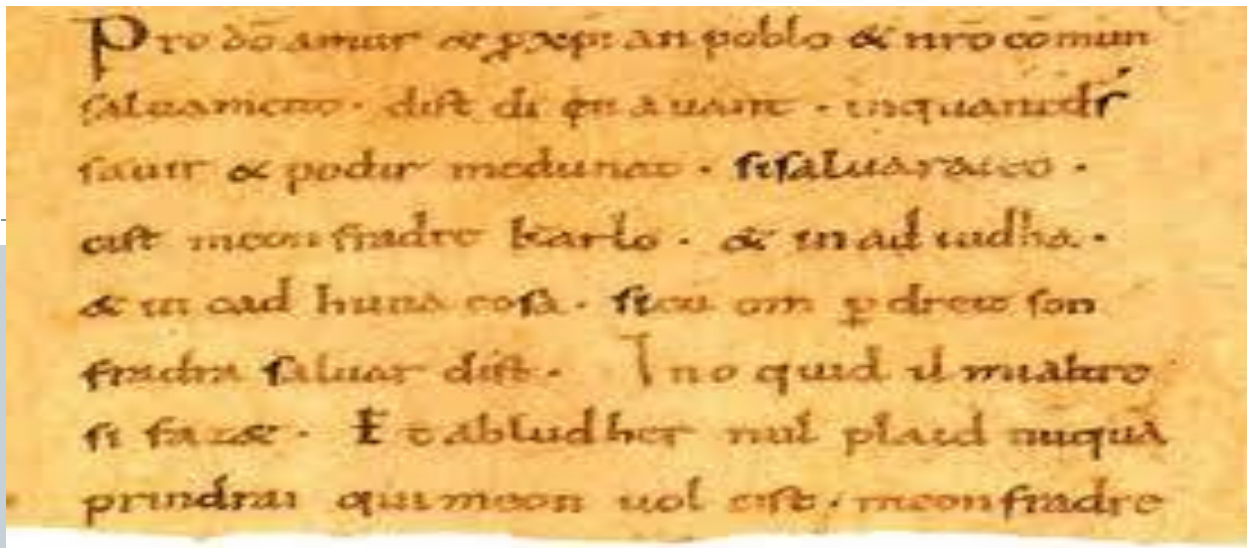 Pro dō amur & ꝓ xp̄ian poblo & nr̄o cōmun
saluament · dist di en auant · inquantdſ
sauir & podir medunat · sisaluaraieo ·
cist meon fradre karlo · & in adiudha ·
& in cad huna cosa · sicū om ꝑ dreit son
fradra saluar dist · Ino quid il mialtre
si fazæ · Et abludher nul plaid nūquā
prindrai qui meon uol cist · meonfradre